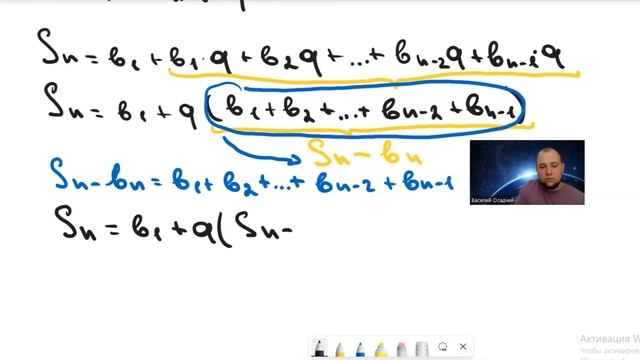 Sn = b₁ + b₁·q + b₂q + ... + bn-2q + bn-1q
Sn = b₁ + q(b₁ + b₂ + ... + bn-2 + bn-1)
Sn - bn
Sn - bn = b₁ + b₂ + ... + bn-2 + bn-1
Василий Осадчий
Sn = b₁ + q(Sn -
Активация W
Чтобы активиров